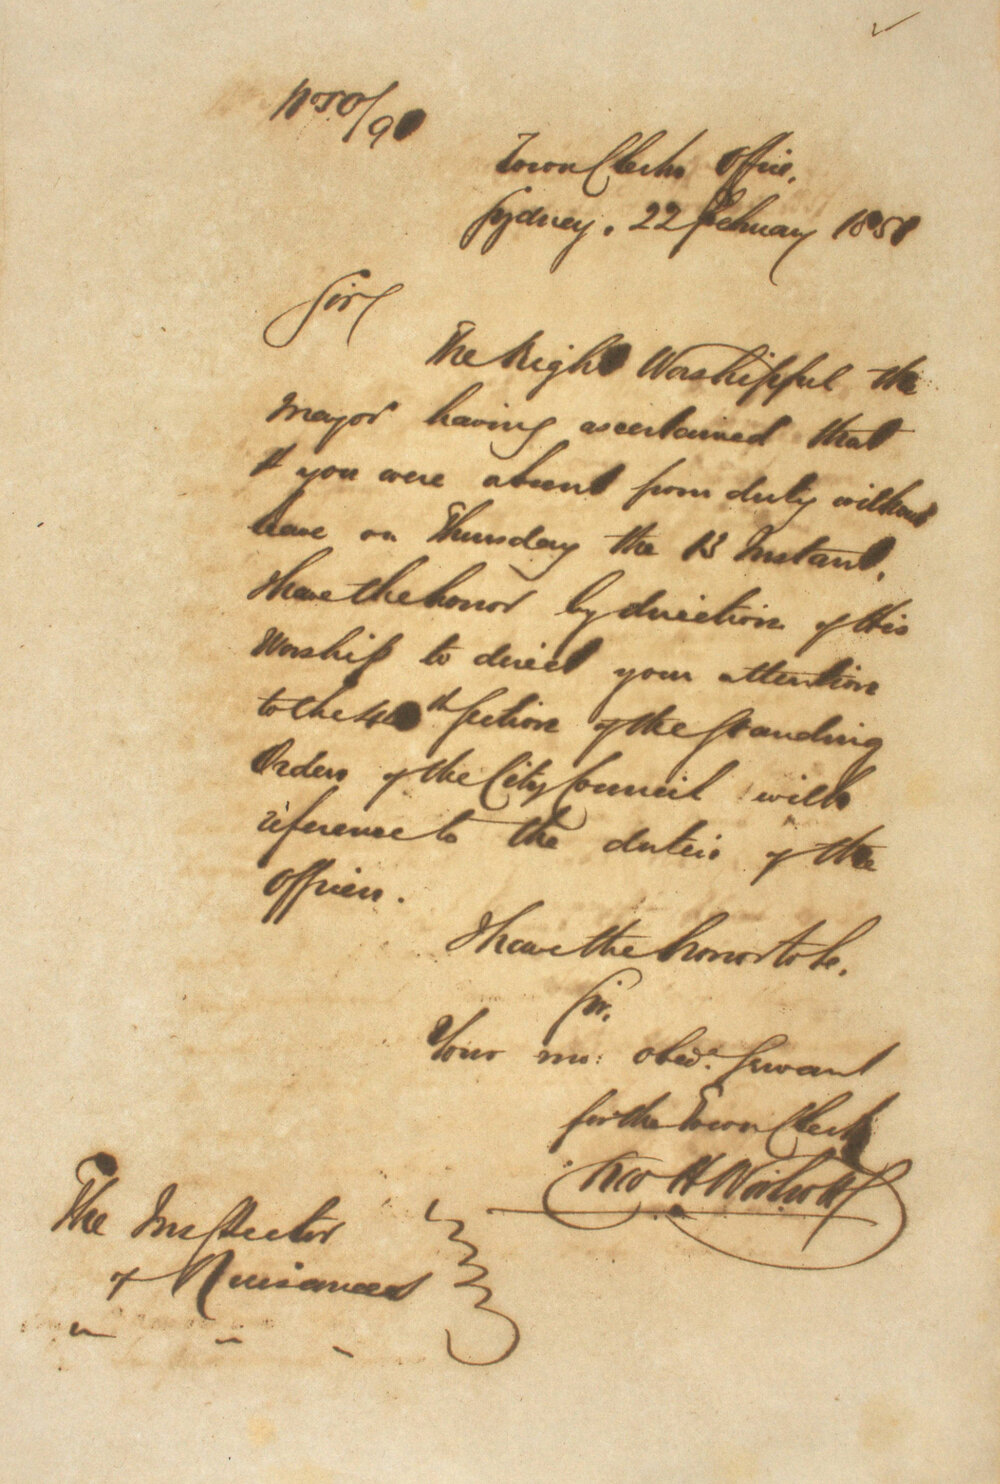 No 50/90
Town Clerks Office,
Sydney, 22 February 1850
Sir
The Right Worshipful the
Mayor having ascertained that
you were absent from duty without
leave on Thursday the Instant,
I have the honor by direction of His
Worship to direct your attention
to the th Section of the Standing
Orders of the City Council with
reference to the duties of the
Officers.
I have the honor to be,
Sir,
Your mo: obedt. Servant
for the Town Clerk
H
The Inspector
of Nuisances